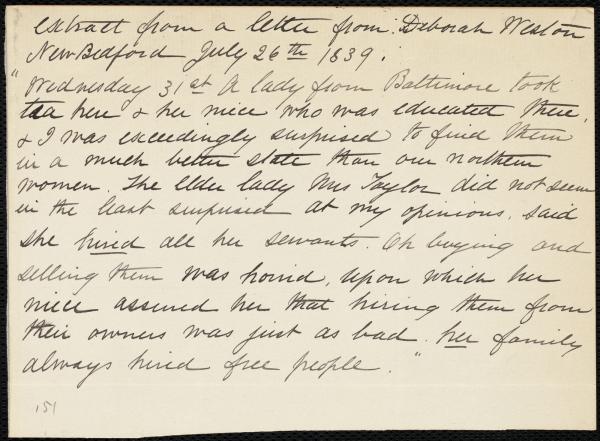 extract from a letter from Deborah Weston
New Bedford July 26th 1839.
"Wednesday 31st A lady from Baltimore took
tea here & her niece who was educated there,
& I was exceedingly surprised to find them
in a much better state than our northern
women. The elder lady Mrs Taylor did not seem
in the least surprised at my opinions, said
she hired all her servants. Oh buying and
selling them was horrid, upon which her
niece assured her that hiring them from
their owners was just as bad. her family
always hired free people."
151